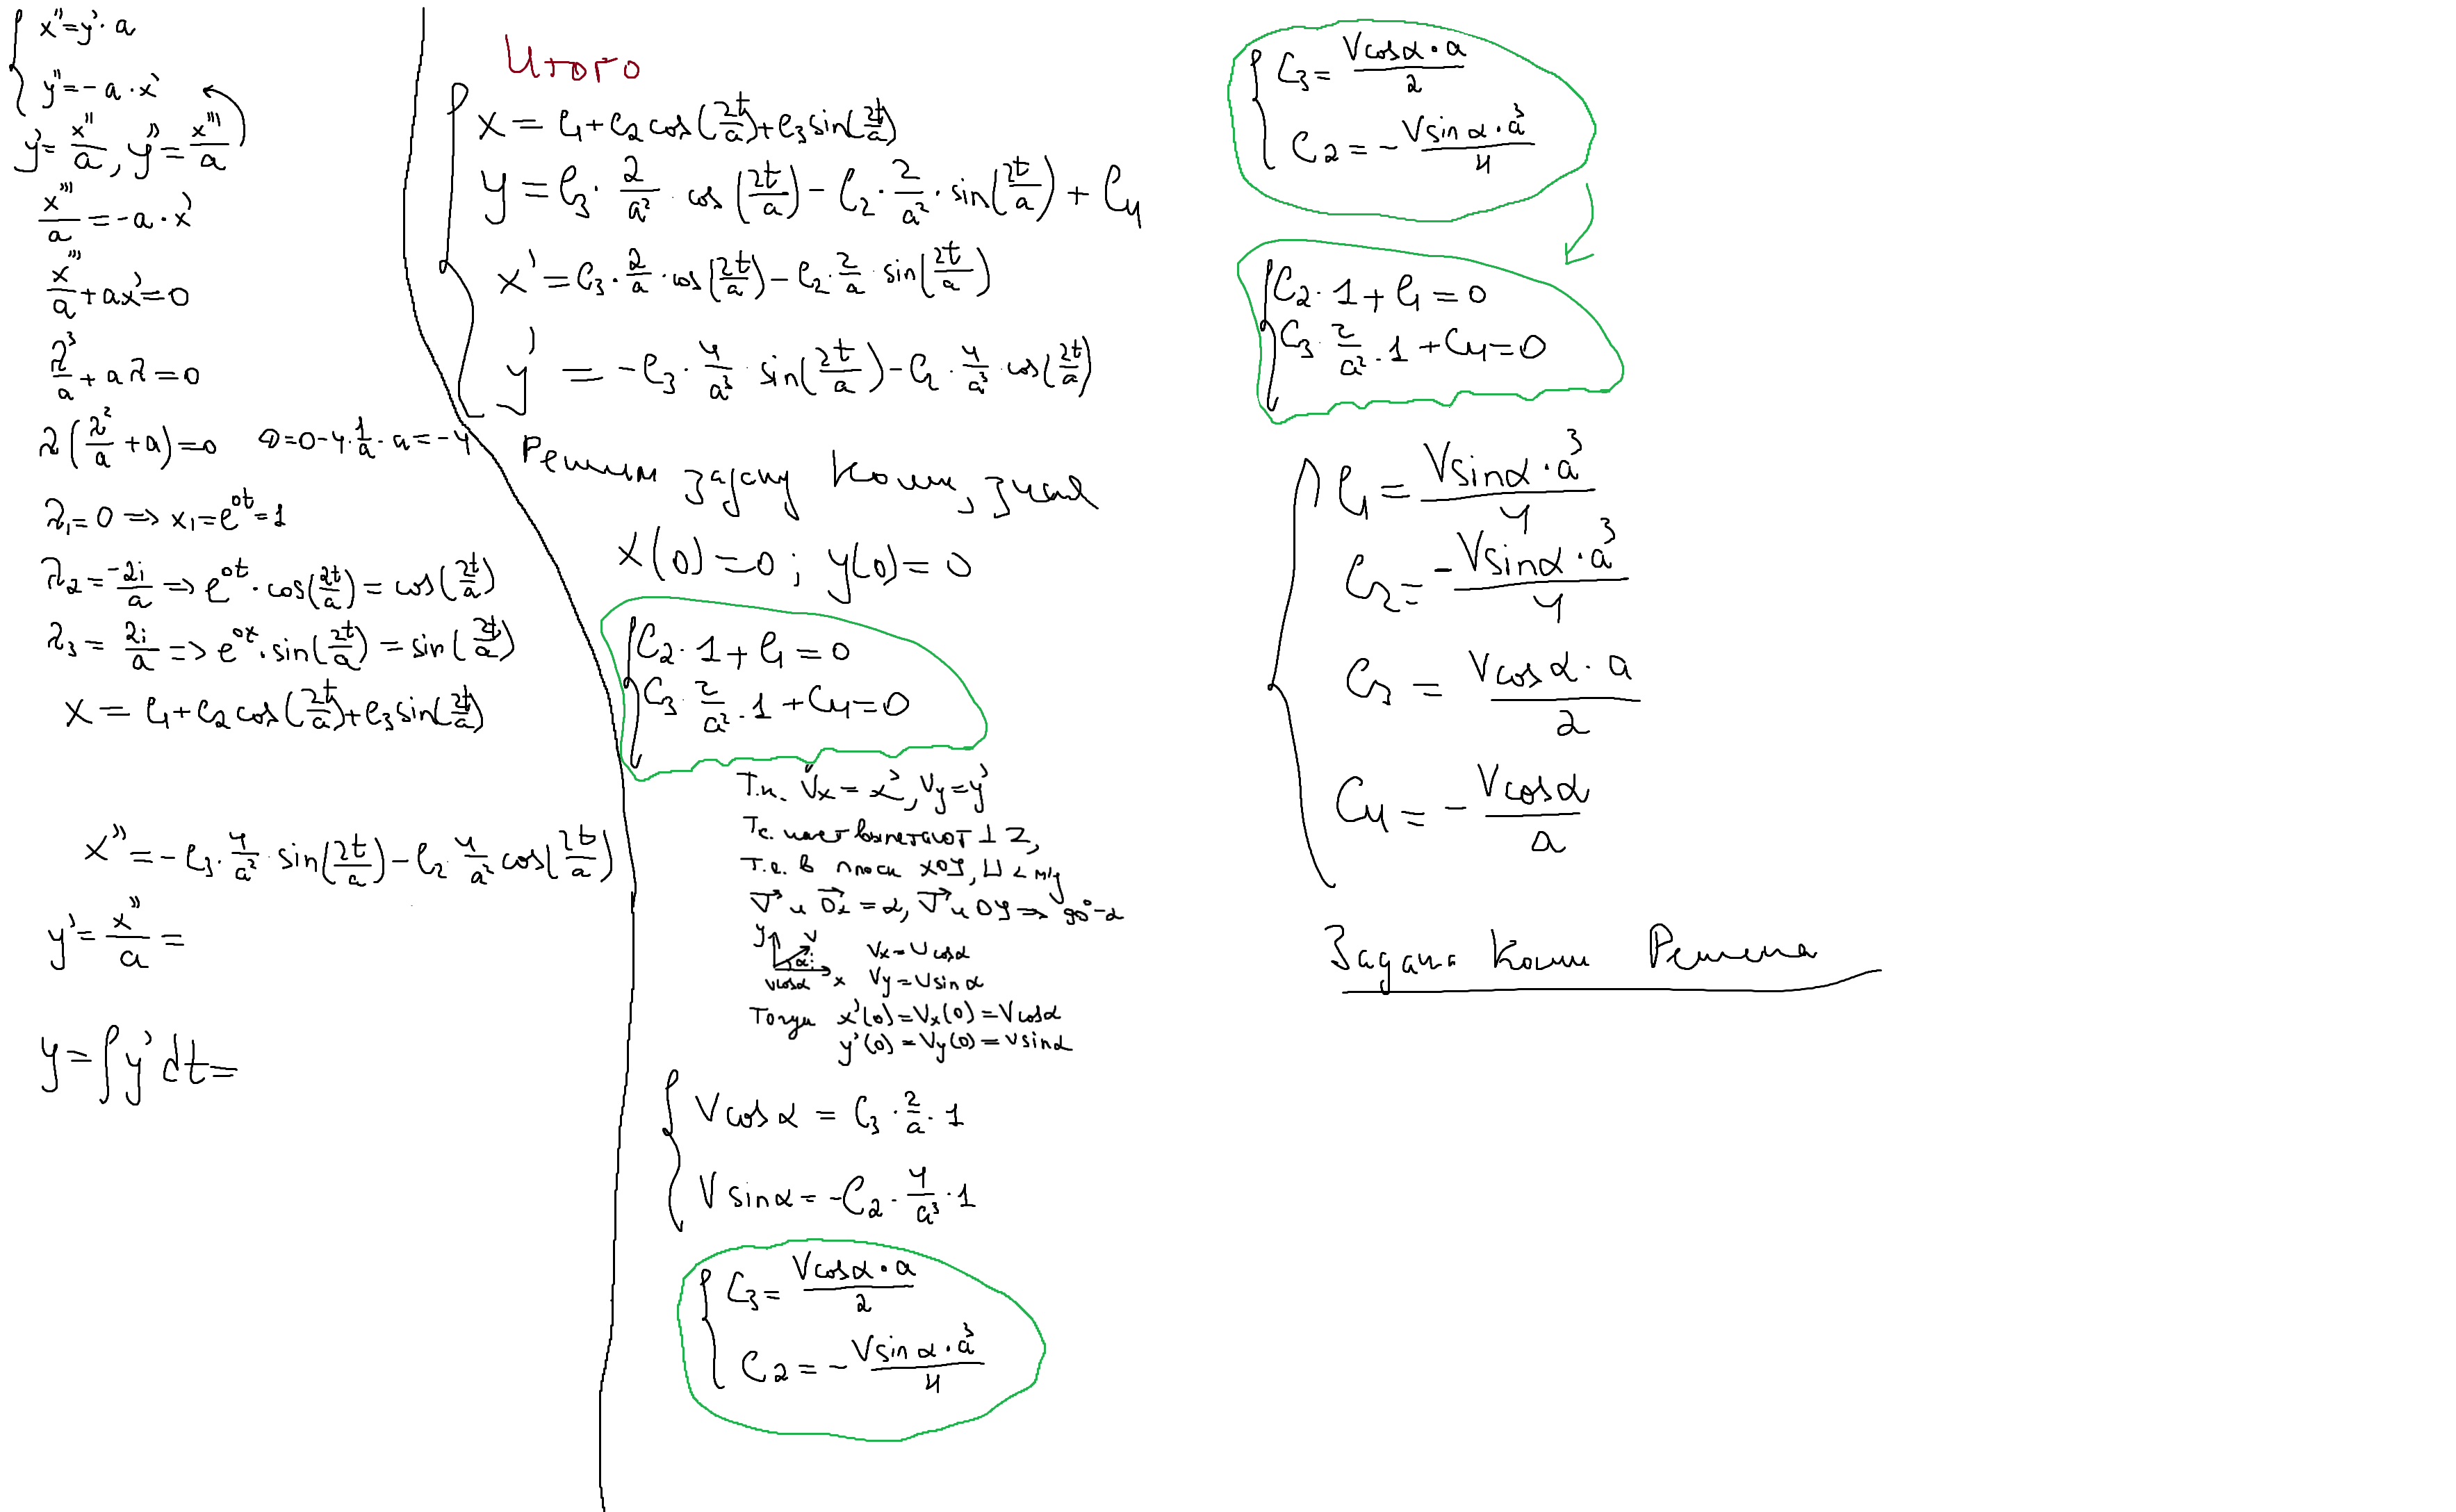 x'' = y' · a
y'' = -a · x'
y' = x''/a, y'' = x'''/a
x'''/a = -a · x'
x'''/a + ax' = 0
λ³/a + aλ = 0
λ(λ²/a + a) = 0    D = 0 - 4 · 1/a · a = -4
λ₁ = 0 => x₁ = e^0t = 1
λ₂ = -2i/a => e^0t · cos(2t/a) = cos(2t/a)
λ₃ = 2i/a => e^0t · sin(2t/a) = sin(2t/a)
x = C₁ + C₂ cos(2t/a) + C₃ sin(2t/a)
x'' = -C₃ · 4/a² · sin(2t/a) - C₂ · 4/a² cos(2t/a)
y' = x''/a =
y = ∫y' dt =
Итого
x = C₁ + C₂ cos(2t/a) + C₃ sin(2t/a)
y = C₃ · 2/a² · cos(2t/a) - C₂ · 2/a² · sin(2t/a) + C₄
x' = C₃ · 2/a · cos(2t/a) - C₂ · 2/a · sin(2t/a)
y' = -C₃ · 4/a³ · sin(2t/a) - C₂ · 4/a³ · cos(2t/a)
Решим задачу Коши, зная
x(0) = 0; y(0) = 0
C₂ · 1 + C₁ = 0
C₃ · 2/a² · 1 + C₄ = 0
Т.к. Vx = x', Vy = y'
вылетают ⊥ Z,
Т.е. в плоск XOY, < м/у
V и Ox = α, V и OY => 90° - α
y V
α
Vcosα x
Vx = Vcosα
Vy = Vsinα
Тогда x'(0) = Vx(0) = Vcosα
y'(0) = Vy(0) = Vsinα
Vcosα = C₃ · 2/a · 1
Vsinα = -C₂ · 4/a³ · 1
C₃ = Vcosα · a/2
C₂ = -Vsinα · a³/4
C₃ = Vcosα · a/2
C₂ = -Vsinα · a³/4
C₂ · 1 + C₁ = 0
C₃ · 2/a² · 1 + C₄ = 0
C₁ = Vsinα · a³/4
C₂ = -Vsinα · a³/4
C₃ = Vcosα · a/2
C₄ = -Vcosα/a
Задача Коши Решена